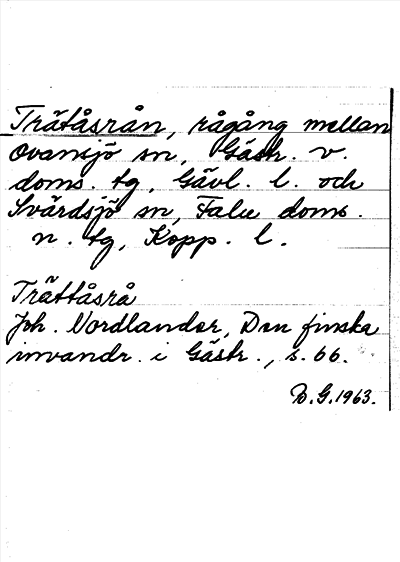 Trätåsrån, rågång mellan
Ovansjö sn, Gästr. v.
doms. tg, Gävl. l. och
Svärdsjö sn, Falu doms.
n. tg, Kopp. l.
Trättåsrå
Joh. Nordlander, Den finska
invandr. i Gästr., s. 66.
B.G. 1963.